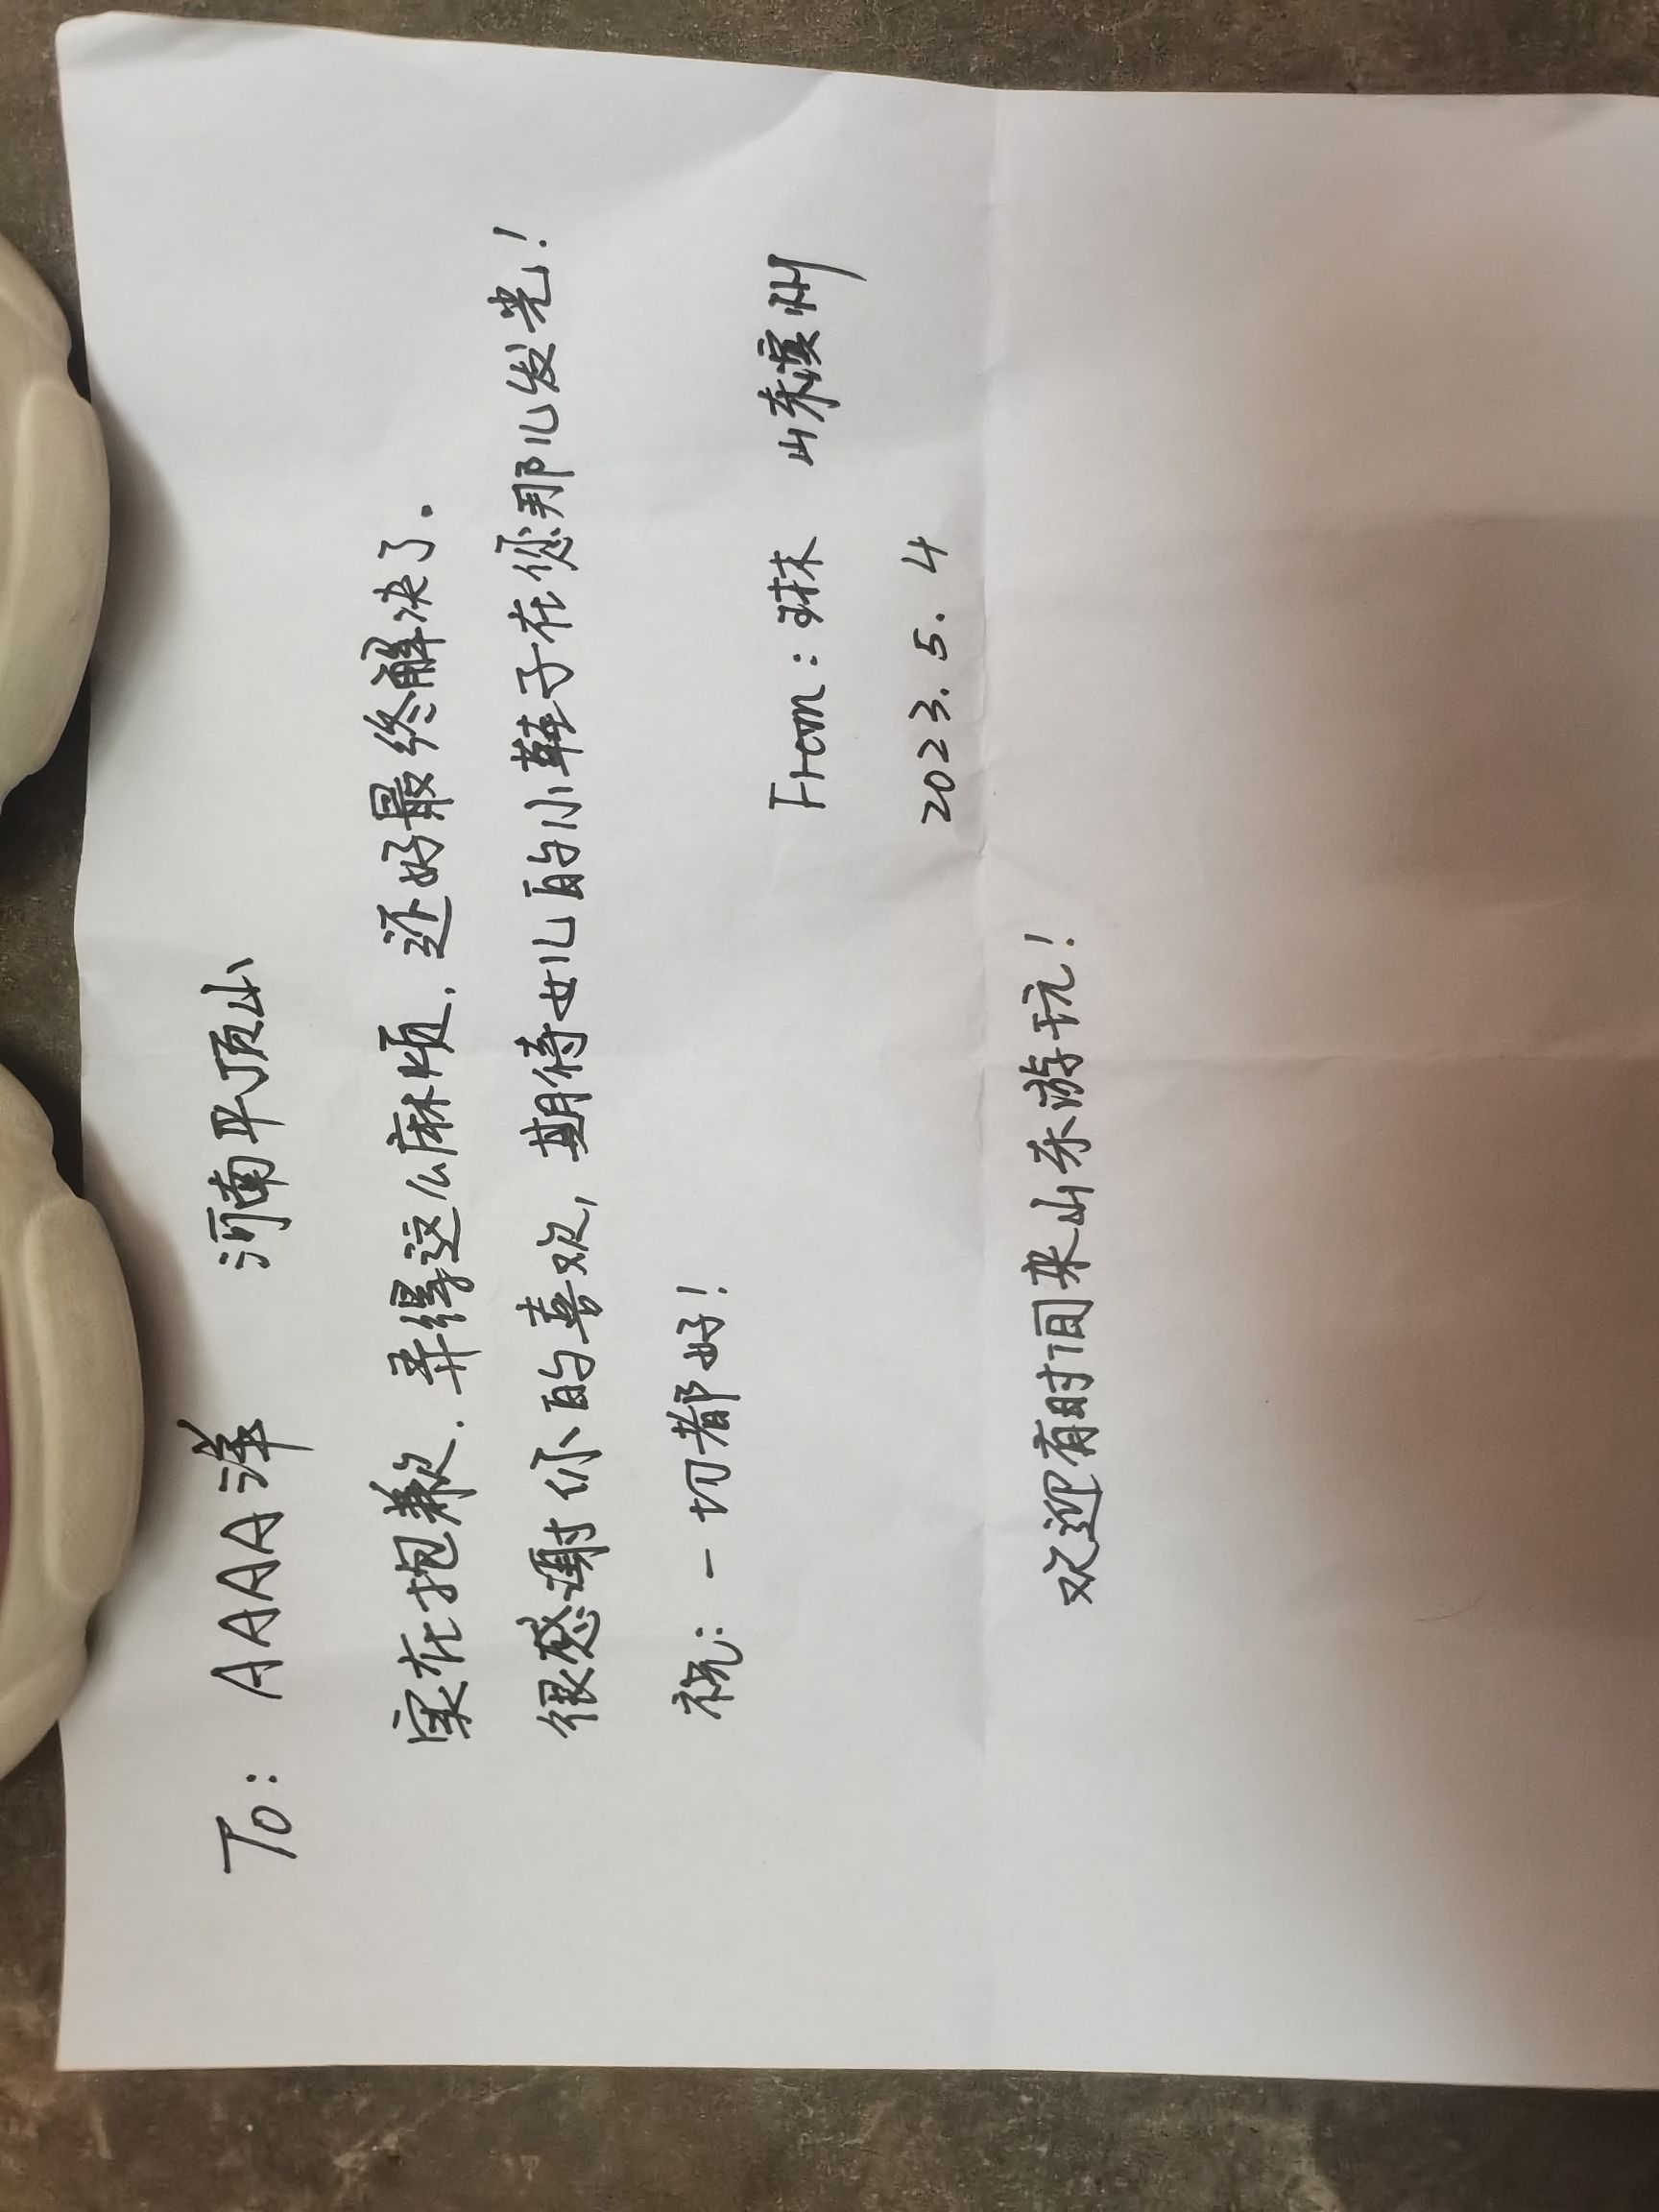 To: AAAA洋 河南平顶山
实在抱歉.弄得这么麻烦,还好最终解决了.
很感谢你的喜欢,期待女儿的小車子在您那儿发光!
祝:一切都好!
From:琜 山东滨州
2023.5.4
欢迎有时间来山东游玩!